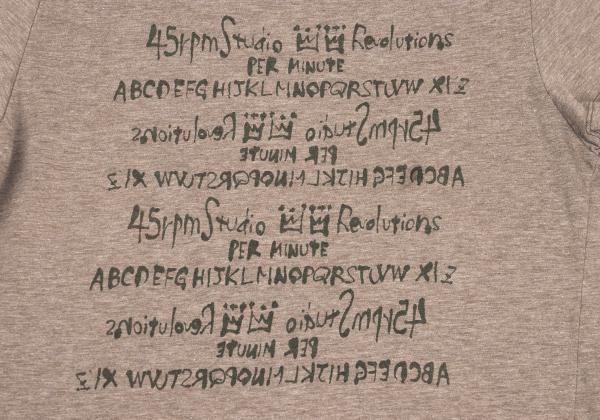 45rpm Studio Revolutions
PER MINUTE
ABCDEFGHIJKLMNOPQRSTUVW XYZ
45rpm Studio Revolutions
PER MINUTE
ABCDEFGHIJKLMNOPQRSTUVW XYZ
45rpm Studio Revolutions
PER MINUTE
ABCDEFGHIJKLMNOPQRSTUVW XYZ
45rpm Studio Revolutions
PER MINUTE
ABCDEFGHIJKLMNOPQRSTUVW XYZ